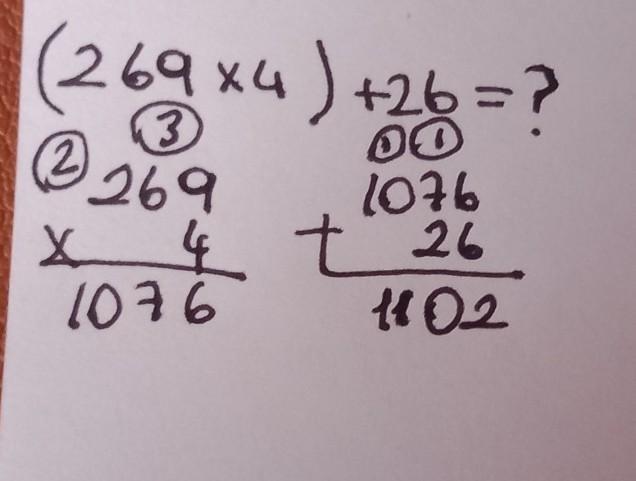 (269 × 4) + 26 = ?
② ③
269
× 4
1076
① ①
1076
+ 26
1102